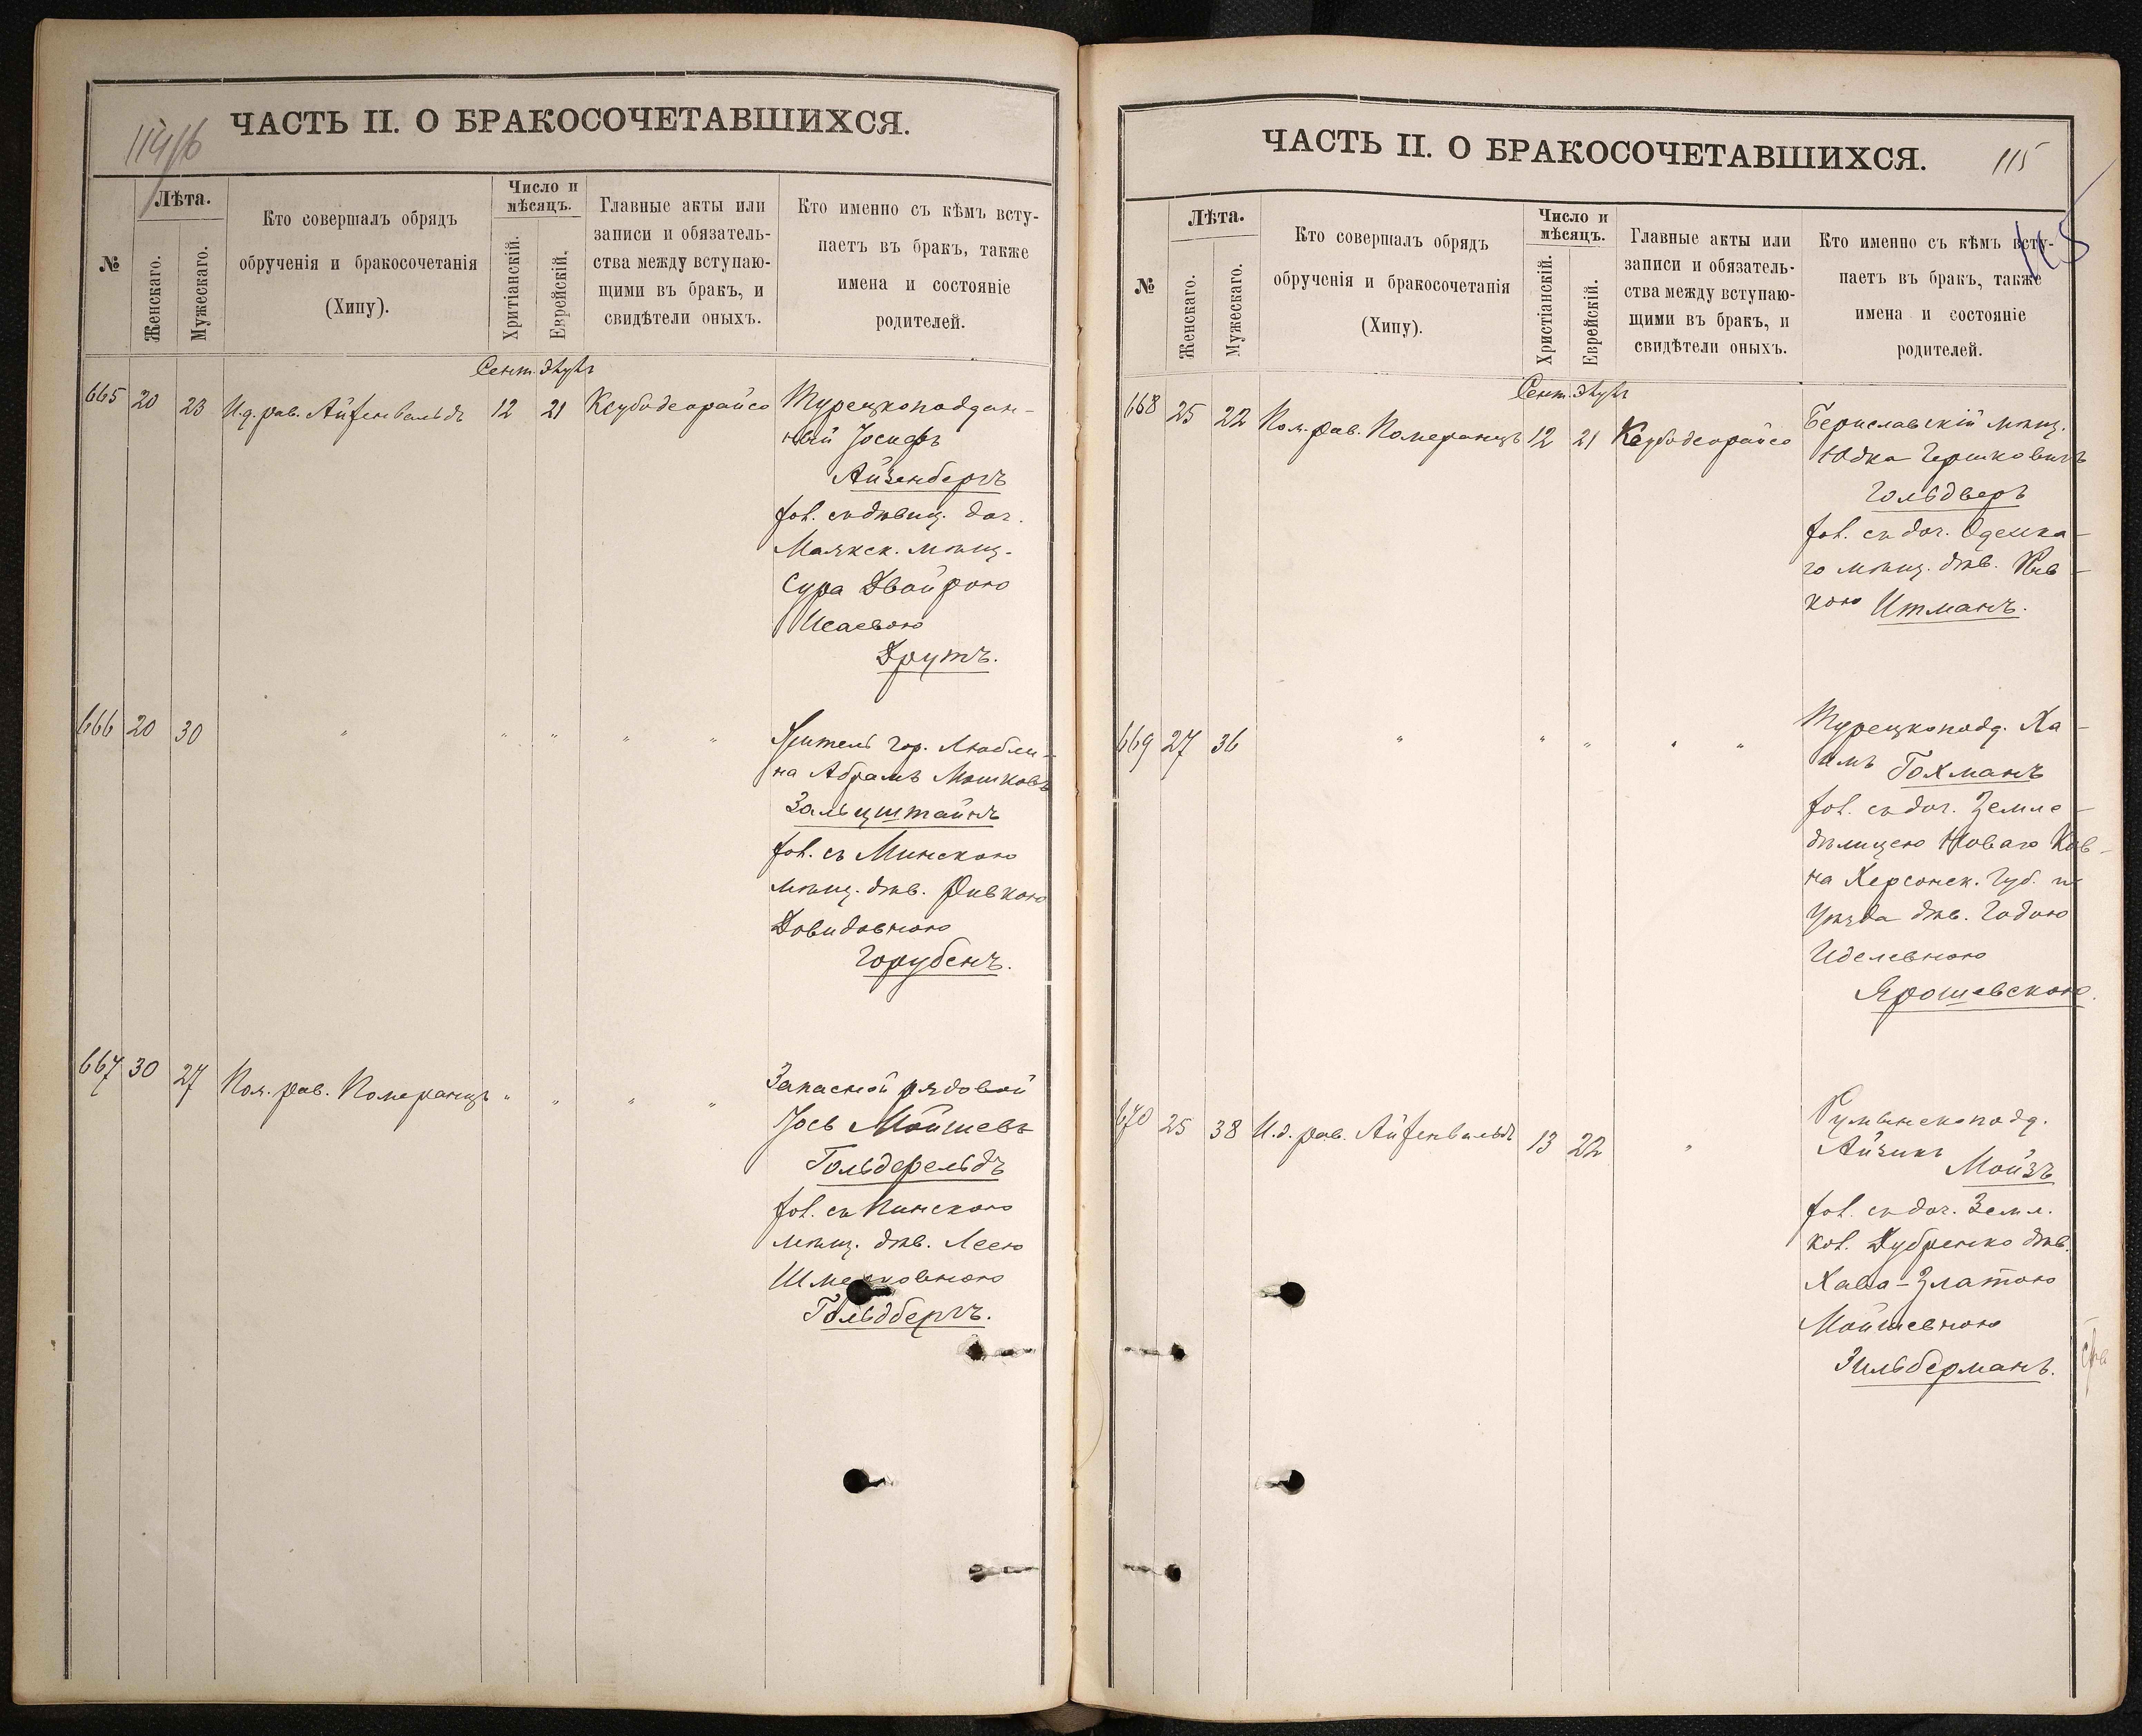 114/б
ЧАСТЬ II. О БРАКОСОЧЕТАВШИХСЯ.
№
Лѣта.
Женскаго.
Мужескаго.
Кто совершалъ обрядъ
обрученія и бракосочетанія
(Хипу).
Число и
мѣсяцъ.
Хритіанскій.
Еврейскій.
Главные акты или
записи и обязатель-
ства между вступаю-
щими въ бракъ, и
свидѣтели оныхъ.
Кто именно съ кѣмъ всту-
паетъ въ бракъ, также
имена и состояніе
родителей.
Сент. Элулъ
665 20 23 И.д. рав. Айзенвальдъ 12 21 Ксубодеорайсо Турецкоподдан-
ный Іосифъ
Айзенбергъ
хол. съ дѣвиц. доч.
Маякск. мѣщ.
Сура Двойрою
Исаевою
Друтъ.
666 20 30 " " " " " Житель гор. Любли-
на Абрамъ Мошковъ
Зальцштайнъ
хол. съ Минскою
мѣщ. дѣв. Ривкою
Довидовною
Горубенъ.
667 30 27 Пом. рав. Померанцъ " " " " Запасной рядовой
Іось Мойшевъ
Гольдфельдъ
хол. съ Пинскою
мѣщ. дѣв. Леею
Шмерковною
Гольдбергъ.
ЧАСТЬ II. О БРАКОСОЧЕТАВШИХСЯ.
115
115
№
Лѣта.
Женскаго.
Мужескаго.
Кто совершалъ обрядъ
обрученія и бракосочетанія
(Хипу).
Число и
мѣсяцъ.
Христіанскій.
Еврейскій.
Главные акты или
записи и обязатель-
ства между вступаю-
щими въ бракъ, и
свидѣтели оныхъ.
Кто именно съ кѣмъ всту-
паетъ въ бракъ, также
имена и состояніе
родителей.
Сент. Элулъ
668 25 22 Пом. рав. Померанцъ 12 21 Ксубодеорайсо Бериславскій мѣщ.
Юдка Гершковичъ
Гольдверъ
хол. съ доч. Одесска-
го мѣщ. дѣв. Рив-
кою Итманъ.
669 27 36 " " " " " Турецкопод. Ха-
имъ Гохманъ
хол. съ доч. Земле-
дѣлицею Новаго Ков-
на Херсонск. Губ. и
Уѣзда дѣв. Годою
Иделевною
Ярошевскою.
670 25 38 И.д. рав. Айзенвальдъ 13 22 " Румынскопод.
Айзикъ
Мойзъ
хол. съ доч. Земл.
кол. Дубренко дѣв.
Хава-Златою
Мойшевною
Зильберманъ.